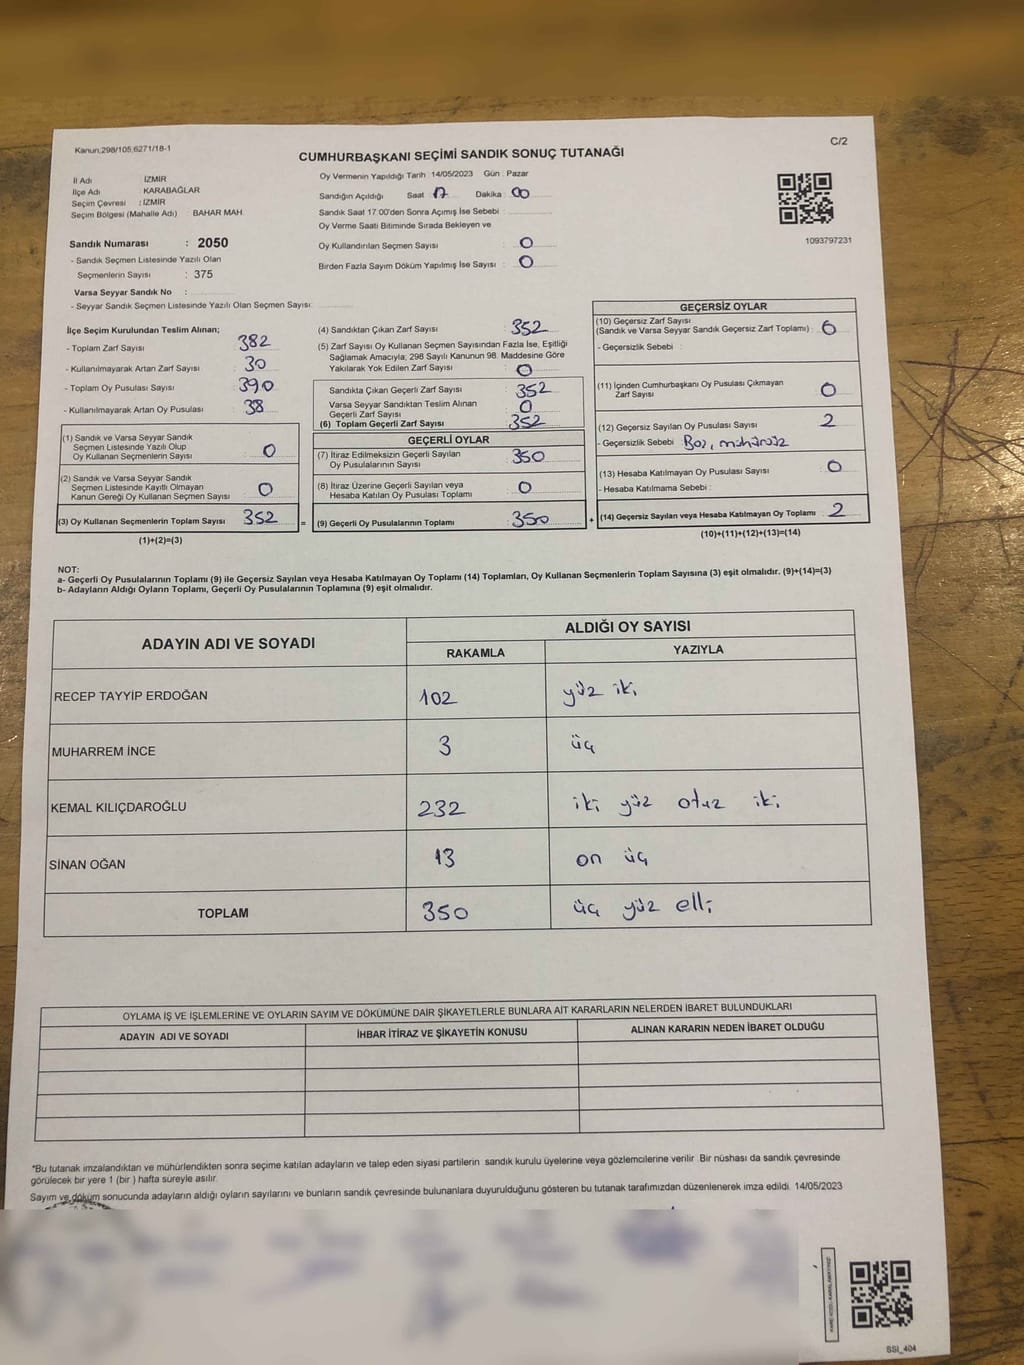 Kanun,298/105,6271/18-1
C/2
CUMHURBAŞKANI SEÇİMİ SANDIK SONUÇ TUTANAĞI
İl Adı : İZMİR
İlçe Adı KARABAĞLAR
Seçim Çevresi : İZMİR
Seçim Bölgesi (Mahalle Adı) BAHAR MAH
Sandık Numarası : 2050
- Sandık Seçmen Listesinde Yazılı Olan
Seçmenlerin Sayısı : 375
Varsa Seyyar Sandık No :
- Seyyar Sandık Seçmen Listesinde Yazılı Olan Seçmen Sayısı:
Oy Vermenin Yapıldığı Tarih 14/05/2023 Gün : Pazar
Sandığın Açıldığı Saat 17 Dakika 00
Sandık Saat 17.00'den Sonra Açımış İse Sebebi :
Oy Verme Saati Bitiminde Sırada Bekleyen ve
Oy Kullandırılan Seçmen Sayısı : 0
Birden Fazla Sayım Döküm Yapılmış İse Sayısı : 0
1093797231
İlçe Seçim Kurulundan Teslim Alınan;
- Toplam Zarf Sayısı 382
- Kullanılmayarak Artan Zarf Sayısı 30
- Toplam Oy Pusulası Sayısı 390
- Kullanılmayarak Artan Oy Pusulası 38
(1) Sandık ve Varsa Seyyar Sandık
Seçmen Listesinde Yazılı Olup
Oy Kullanan Seçmenlerin Sayısı 0
(2) Sandık ve Varsa Seyyar Sandık
Seçmen Listesinde Kayıtlı Olmayan
Kanun Gereği Oy Kullanan Seçmen Sayısı 0
(3) Oy Kullanan Seçmenlerin Toplam Sayısı 352 =
(1)+(2)=(3)
(4) Sandıktan Çıkan Zarf Sayısı : 352
(5) Zarf Sayısı Oy Kullanan Seçmen Sayısından Fazla İse, Eşitliği
Sağlamak Amacıyla; 298 Sayılı Kanunun 98. Maddesine Göre
Yakılarak Yok Edilen Zarf Sayısı : 0
Sandıkta Çıkan Geçerli Zarf Sayısı : 352
Varsa Seyyar Sandıktan Teslim Alınan
Geçerli Zarf Sayısı : 0
(6) Toplam Geçerli Zarf Sayısı : 352
GEÇERLİ OYLAR
(7) İtiraz Edilmeksizin Geçerli Sayılan
Oy Pusulalarının Sayısı : 350
(8) İtiraz Üzerine Geçerli Sayılan veya
Hesaba Katılan Oy Pusulası Toplamı : 0
(9) Geçerli Oy Pusulalarının Toplamı : 350 +
GEÇERSİZ OYLAR
(10) Geçersiz Zarf Sayısı
(Sandık ve Varsa Seyyar Sandık Geçersiz Zarf Toplamı) : 0
- Geçersizlik Sebebi :
(11) İçinden Cumhurbaşkanı Oy Pusulası Çıkmayan
Zarf Sayısı : 0
(12) Geçersiz Sayılan Oy Pusulası Sayısı : 2
- Geçersizlik Sebebi : Boş, mühürsüz
(13) Hesaba Katılmayan Oy Pusulası Sayısı : 0
- Hesaba Katılmama Sebebi :
(14) Geçersiz Sayılan veya Hesaba Katılmayan Oy Toplamı : 2
(10)+(11)+(12)+(13)=(14)
NOT:
a- Geçerli Oy Pusulalarının Toplamı (9) ile Geçersiz Sayılan veya Hesaba Katılmayan Oy Toplamı (14) Toplamları, Oy Kullanan Seçmenlerin Toplam Sayısına (3) eşit olmalıdır. (9)+(14)=(3)
b- Adayların Aldığı Oyların Toplamı, Geçerli Oy Pusulalarının Toplamına (9) eşit olmalıdır.
ADAYIN ADI VE SOYADI ALDIĞI OY SAYISI
RAKAMLA YAZIYLA
RECEP TAYYİP ERDOĞAN 102 yüz iki
MUHARREM İNCE 3 üç
KEMAL KILIÇDAROĞLU 232 iki yüz otuz iki
SİNAN OĞAN 13 on üç
TOPLAM 350 üç yüz elli
OYLAMA İŞ VE İŞLEMLERİNE VE OYLARIN SAYIM VE DÖKÜMÜNE DAİR ŞİKAYETLERLE BUNLARA AİT KARARLARIN NELERDEN İBARET BULUNDUKLARI
ADAYIN ADI VE SOYADI İHBAR İTİRAZ VE ŞİKAYETİN KONUSU ALINAN KARARIN NEDEN İBARET OLDUĞU
*Bu tutanak imzalandıktan ve mühürlendikten sonra seçime katılan adayların ve talep eden siyasi partilerin sandık kurulu üyelerine veya gözlemcilerine verilir. Bir nüshası da sandık çevresinde
görülecek bir yere 1 (bir ) hafta süreyle asılır.
Sayım ve döküm sonucunda adayların aldığı oyların sayılarını ve bunların sandık çevresinde bulunanlara duyurulduğunu gösteren bu tutanak tarafımızdan düzenlenerek imza edildi. 14/05/2023
SSI_404